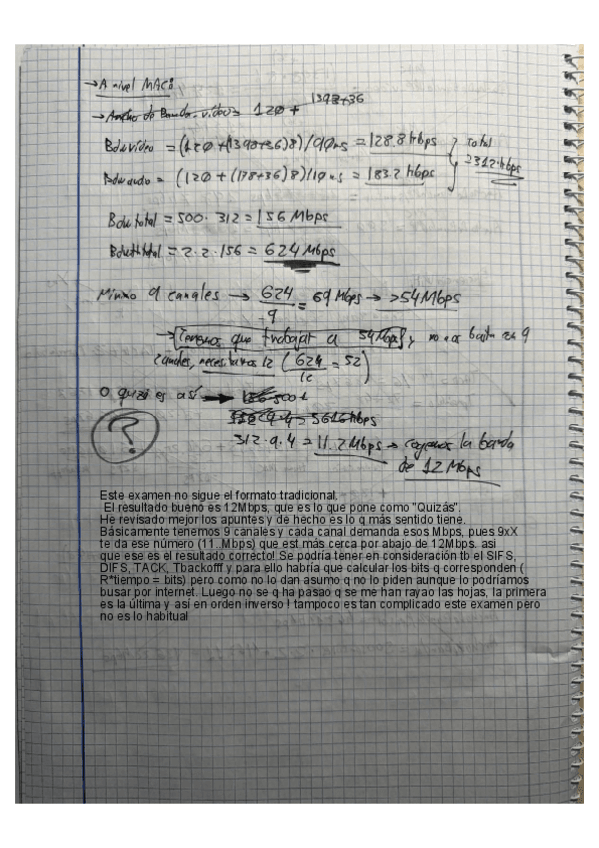 → A nivel MAC:
→ Ancho de Banda video = 120 + 1398+36
Bdw video = (120+(1398+36)8)/90ms = 128.8 kbps } Total
Bdw audio = (120+(178+36)8)/10ms = 183.2 kbps } = 312 kbps
Bdw total = 500·312 = 156 Mbps
Bdw total = 2·2·156 = 624 Mbps
Mínimo 9 canales → 624/9 = 69 Mbps → >54Mbps
→ Tenemos que trabajar a 54Mbps y no nos basta con 9
canales, necesitamos 12 (624/12 = 52)
O quizá es así →
312·9·4 = 11.2Mbps → cogemos la banda
de 12 Mbps
?
Este examen no sigue el formato tradicional.
El resultado bueno es 12Mbps, que es lo que pone como "Quizás".
He revisado mejor los apuntes y de hecho es lo q más sentido tiene.
Básicamente tenemos 9 canales y cada canal demanda esos Mbps, pues 9xX
te da ese número (11..Mbps) que est más cerca por abajo de 12Mbps. asi
que ese es el resultado correcto! Se podría tener en consideración tb el SIFS,
DIFS, TACK, Tbackofff y para ello habría que calcular los bits q corresponden (
R*tiempo = bits) pero como no lo dan asumo q no lo piden aunque lo podríamos
busar por internet. Luego no se q ha pasao q se me han rayao las hojas, la primera
es la última y así en orden inverso ! tampoco es tan complicado este examen pero
no es lo habitual